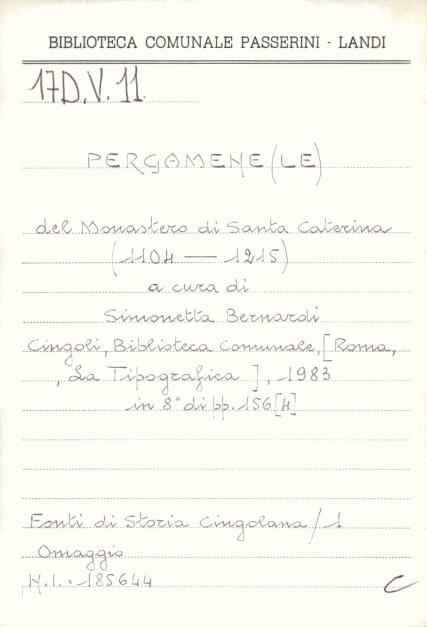 BIBLIOTECA COMUNALE PASSERINI - LANDI
17D.V.11.
PERGAMENE (LE)
del Monastero di Santa Caterina
(1104 — 1215)
a cura di
Simonetta Bernardi
Cingoli, Biblioteca Comunale, [Roma,
, La Tipografica ], 1983
in 8° di pp. 156 [4]
Fonti di Storia Cingolana / 1
Omaggio
N.I.: 185644
C